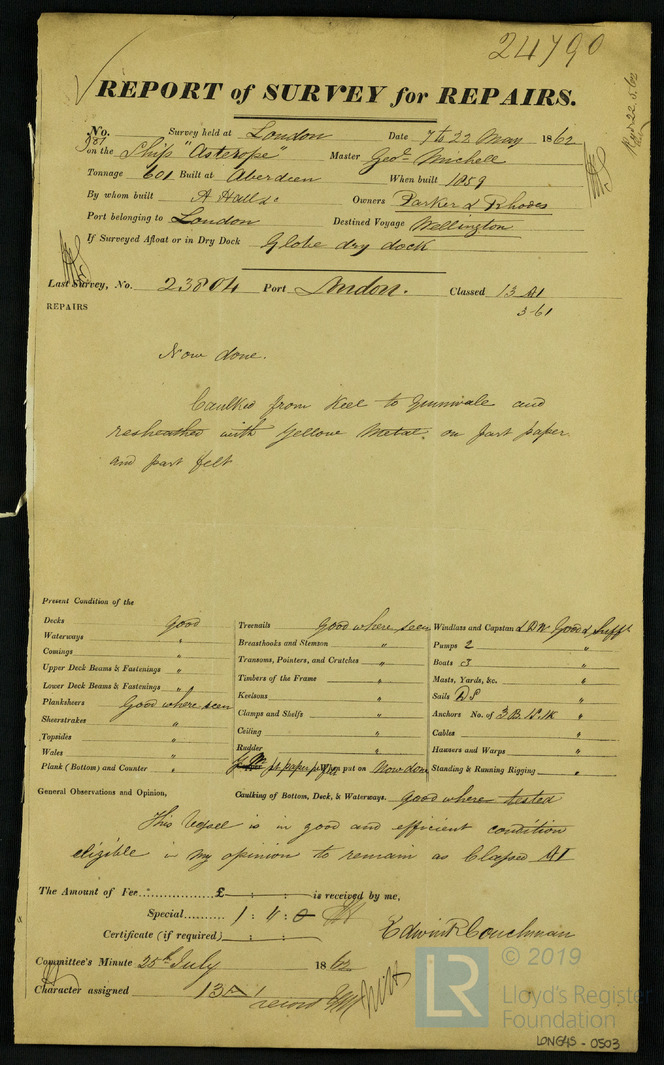 24790
REPORT of SURVEY for REPAIRS.
No. Survey held at London Date 7 to 22 May 1862
on the Ship "Asterope" Master Geoe Michell
Tonnage 601 Built at Aberdeen When built 1859
By whom built A Hall & Owners Parker & Rhodes
Port belonging to London Destined Voyage Wellington
If Surveyed Afloat or in Dry Dock Globe dry dock
Last Survey, No. 23804 Port London. Classed 13 A1
3-61
REPAIRS
Now done.
Caulked from Keel to Gunwale and
resheathed with Yellow Metal on part paper
and part felt
Present Condition of the
Decks good
Waterways "
Comings "
Upper Deck Beams & Fastenings "
Lower Deck Beams & Fastenings "
Planksheers Good where seen
Sheerstrakes "
Topsides "
Wales "
Plank (Bottom) and Counter "
Treenails Good where seen
Breasthooks and Stemson "
Transoms, Pointers, and Crutches "
Timbers of the Frame "
Keelsons "
Clamps and Shelfs "
Ceiling "
Rudder "
When put on Now done
Caulking of Bottom, Deck, & Waterways. good where tested
Windlass and Capstan & Good & Sufft
Pumps 2 "
Boats 3 "
Masts, Yards, &c. "
Sails "
Anchors No. of 3 B. 1 S. 1 K "
Cables "
Hawsers and Warps "
Standing & Running Rigging "
General Observations and Opinion,
This Vessel is in good and efficient condition
eligible in my opinion to remain as Classed A1
The Amount of Fee £ : : is received by me,
Special 1 : 1 : 0
Certificate (if required) : :
Edwin R Couchman
Committee's Minute 25th July 1862
Character assigned 13 A1
© 2019
LR
Lloyd's Register
Foundation
LON645-0503